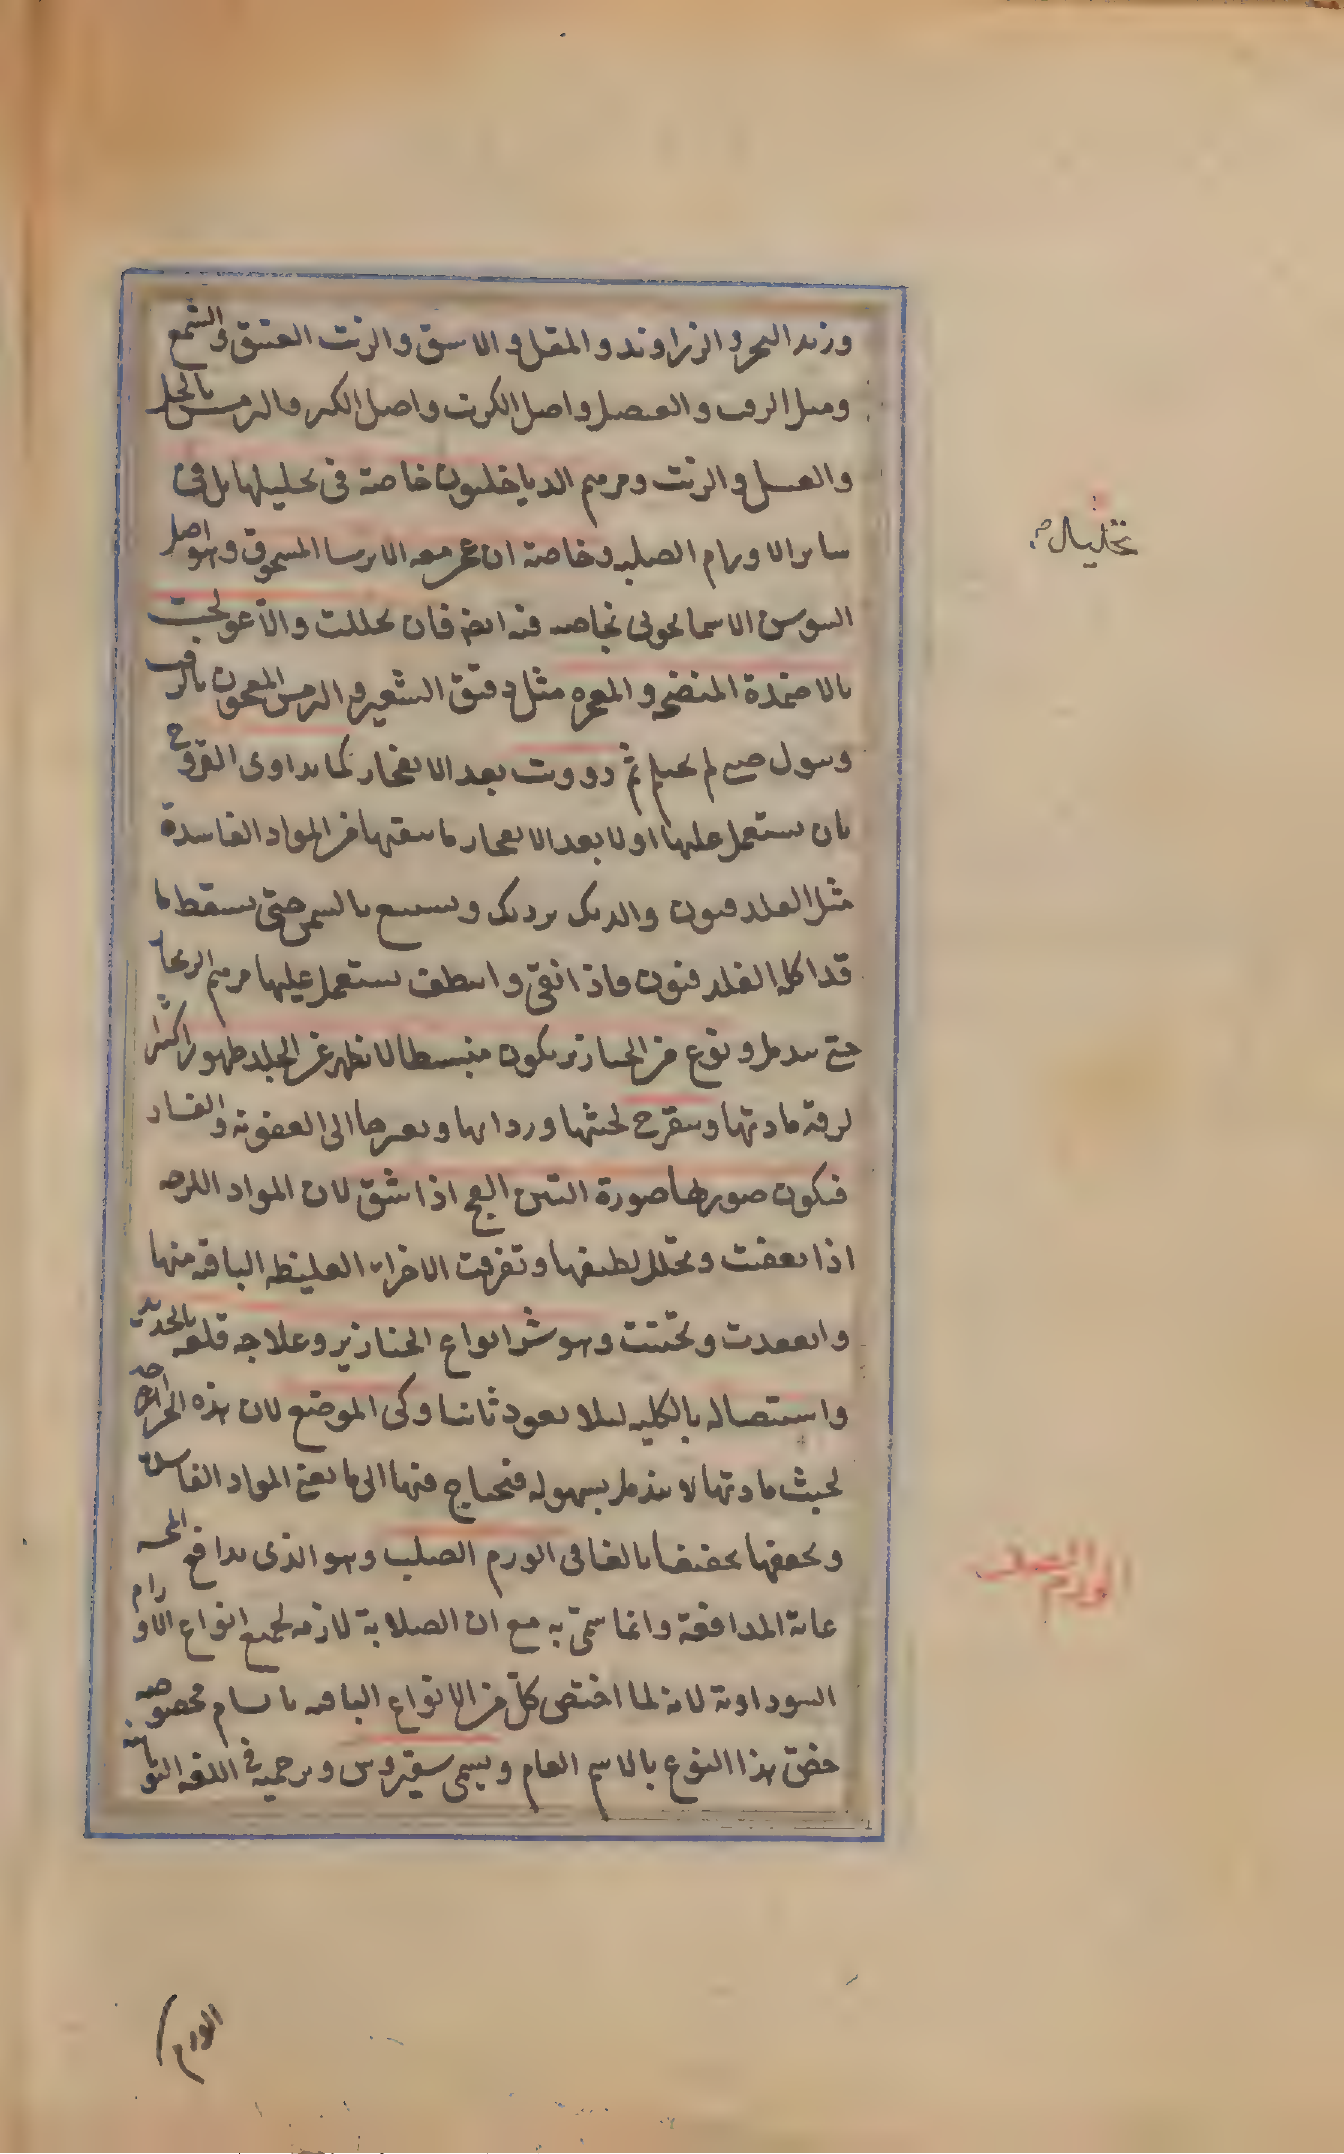 وزبد البحر والزراوند والمقل والاشق والزيت العتيق والشمع
ومثل الزفت والعنصل واصل الكرنب واصل الكبر والترمس بالخل
والعسل والزيت ومرهم الدياخليون خاصة فى تحليلها بل فى
ساير الاورام الصلبه وخاصة ان عجن معه الايرسا المسحوق وهو اصل
السوسن الاسمانجونى بخاصه فيه ايضا فان تحللت والا عولجت
بالاضمدة المنضجه والمفجره مثل دقيق الشعير والترمس المعجون بالزفت
وبول صبى لم يحتلم ثم دوويت بعد الانفجار كما يداوى القروح
بان يستعمل عليها اولا بعد الانفجار ما ينقيها من المواد الفاسدة
مثل الفلدفيون والديك برديك ويتبع بالسمن حتى يسقط ما
قد اكله الفلدفيون فاذا نقى وانظف يستعمل عليها مرهم الزنجار
حتى يندمل ونوع من الخنازير يكون منبسطا لا يظهر عن الجلد ظهورا كثيرا
لرقة مادتها ويتقرح لخبثها ورداءتها وتعرضها الى العفونه والفساد
فيكون صورتها صورة التين الفج اذا شق لان المواد اللزجه
اذا تعفنت وتحلل لطيفها وتفرقت الاجزاء الغليظه الباقيه منها
وانعقدت وتحببت وهو شر انواع الخنازير وعلاجه قلعه بالحديد
واستصاله بالكليه لئلا يعود ثانيا وكى الموضع لان هذه الجراحه
لخبث مادتها لا يندمل بسهوله فيحتاج فيها الى ما يفنى المواد الفاسدة
ويجففها تجفيفا بالغا فى الورم الصلب وهو الذى يدافع المجسه
غاية المدافعة وانما سمى به مع ان الصلابة لازمه لجميع انواع الاورام
السوداوية لانه لما اختص كل من الانواع الباقيه باسام مخصوصه
خص هذا النوع بالاسم العام ويسمى سقيروس وترجمته فى اللغه اليونانيه
تحليل
الورم الصلب
الورم